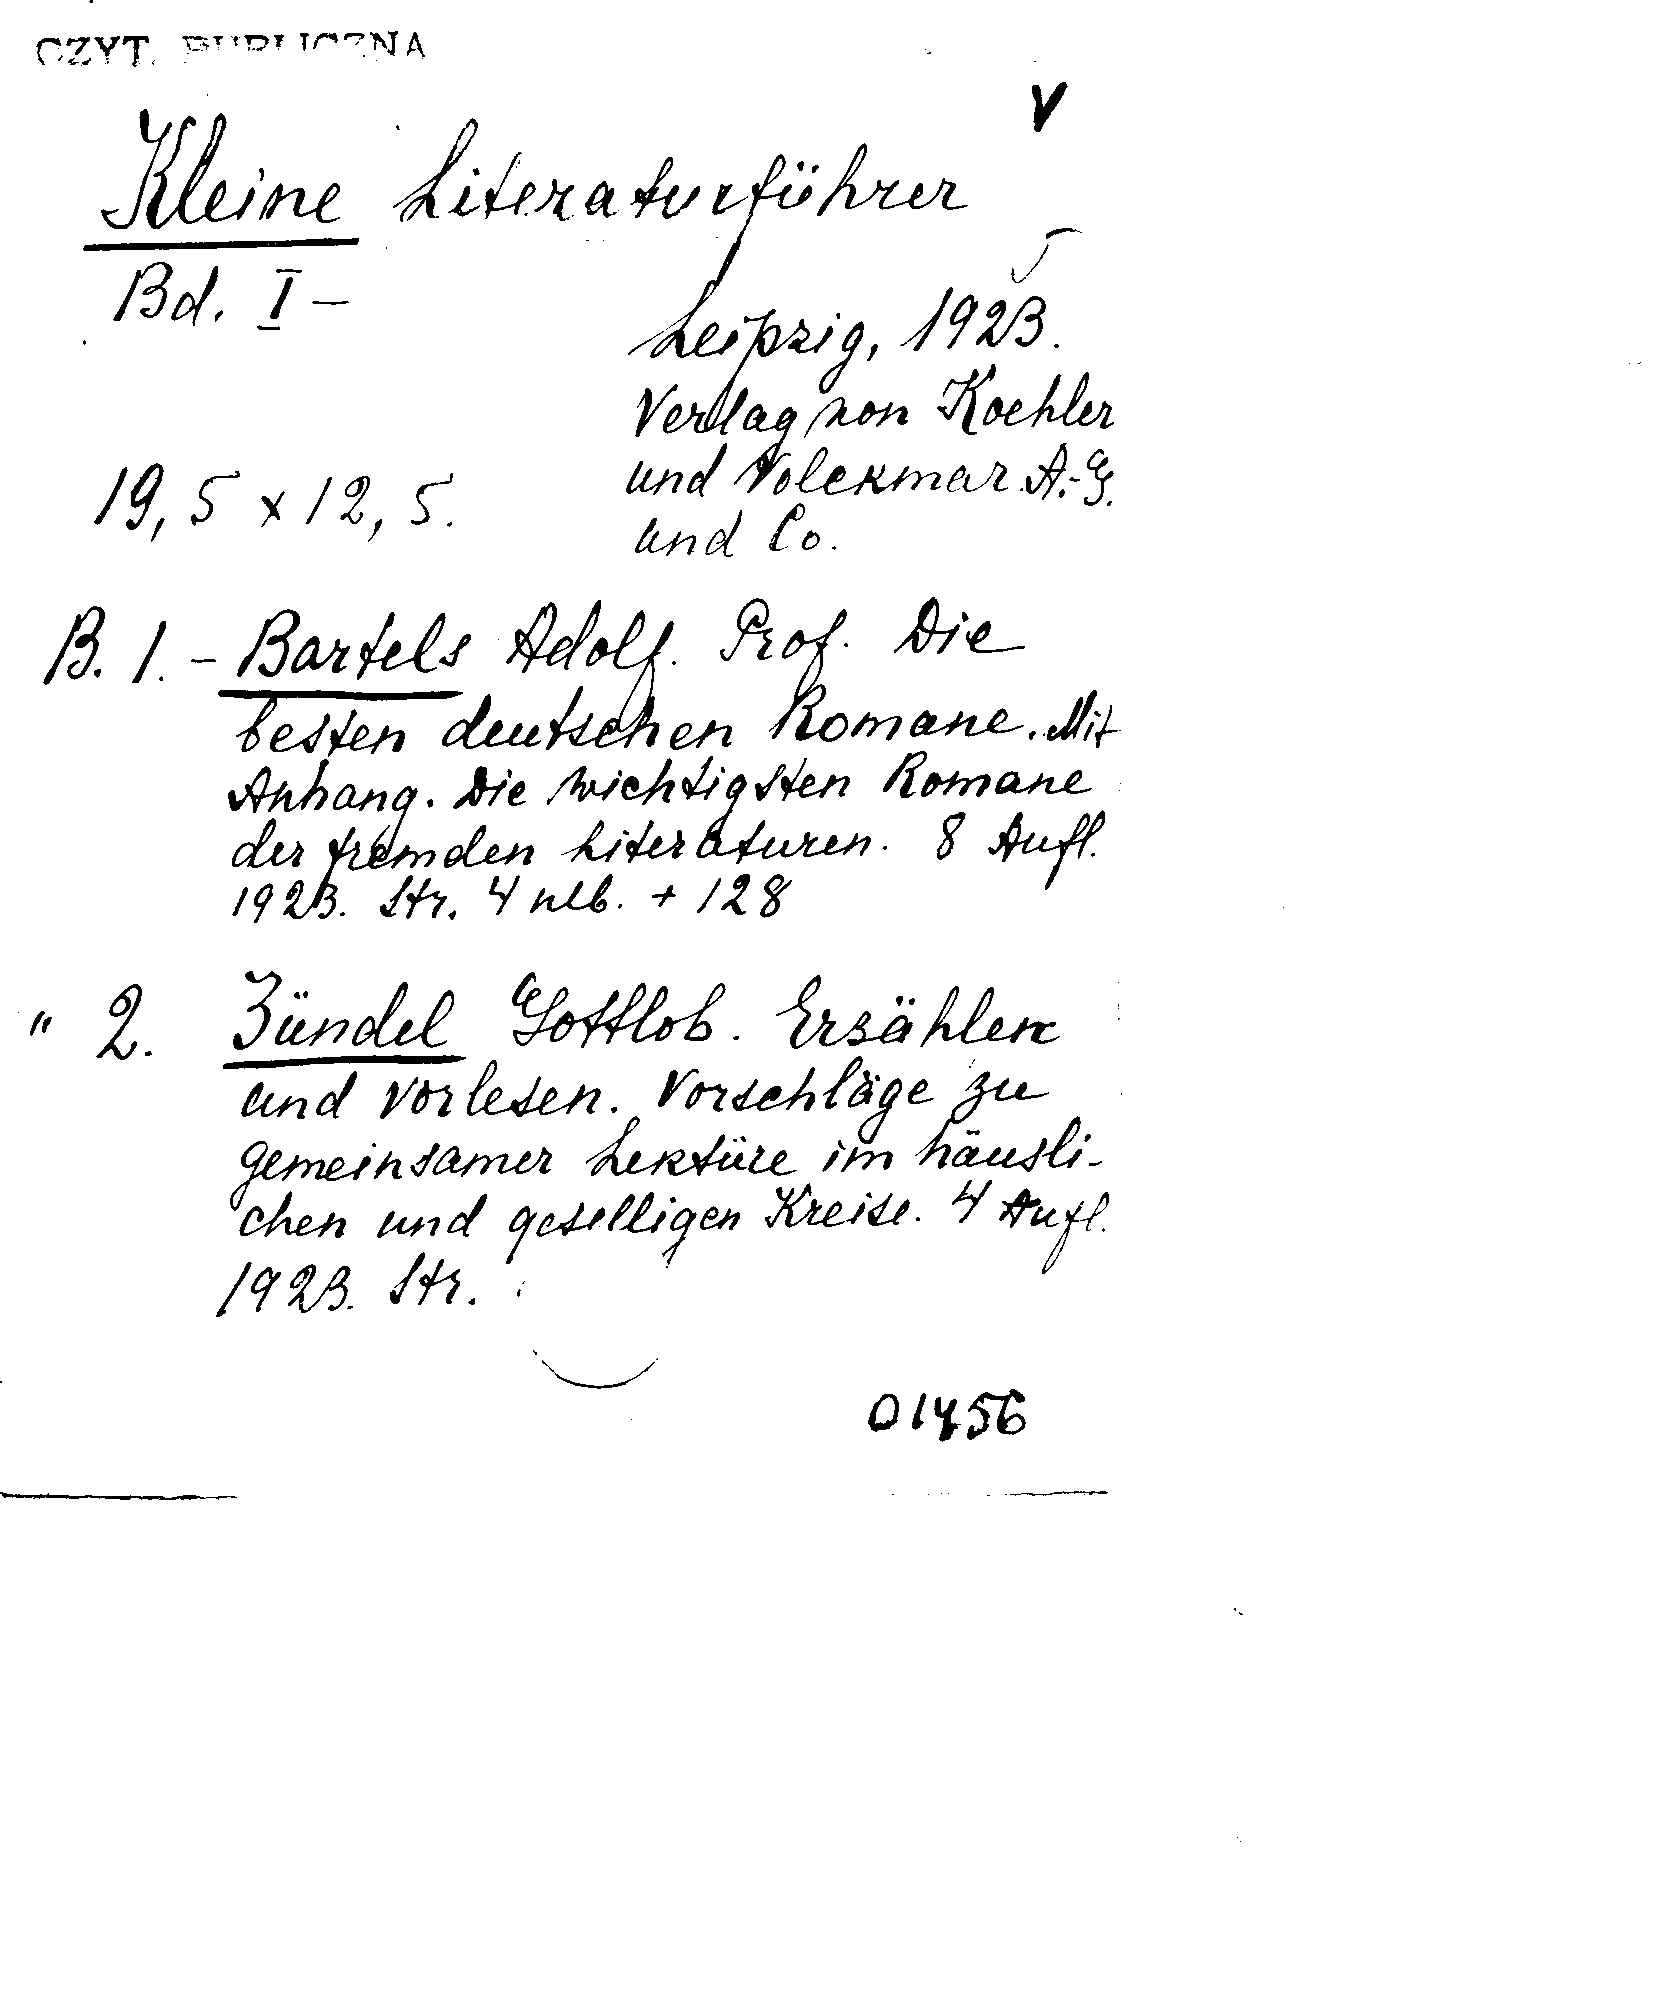 CZYT. PUBLICZNA
V
Kleine Literaturführer
Bd. I –
Leipzig, 1923.
Verlag von Koehler
und Volckmar A.-G.
und Co.
19,5 x 12,5.
B. 1. – Bartels Adolf. Prof. Die
besten deutschen Romane. Mit
Anhang. Die wichtigsten Romane
der fremden Literaturen. 8 Aufl.
1923. Str. 4 nlb. + 128
" 2. Zündel Gottlob. Erzählen
und Vorlesen. Vorschläge zu
gemeinsamer Lektüre im häusli-
chen und geselligen Kreise. 4 Aufl.
1923. Str.
01456